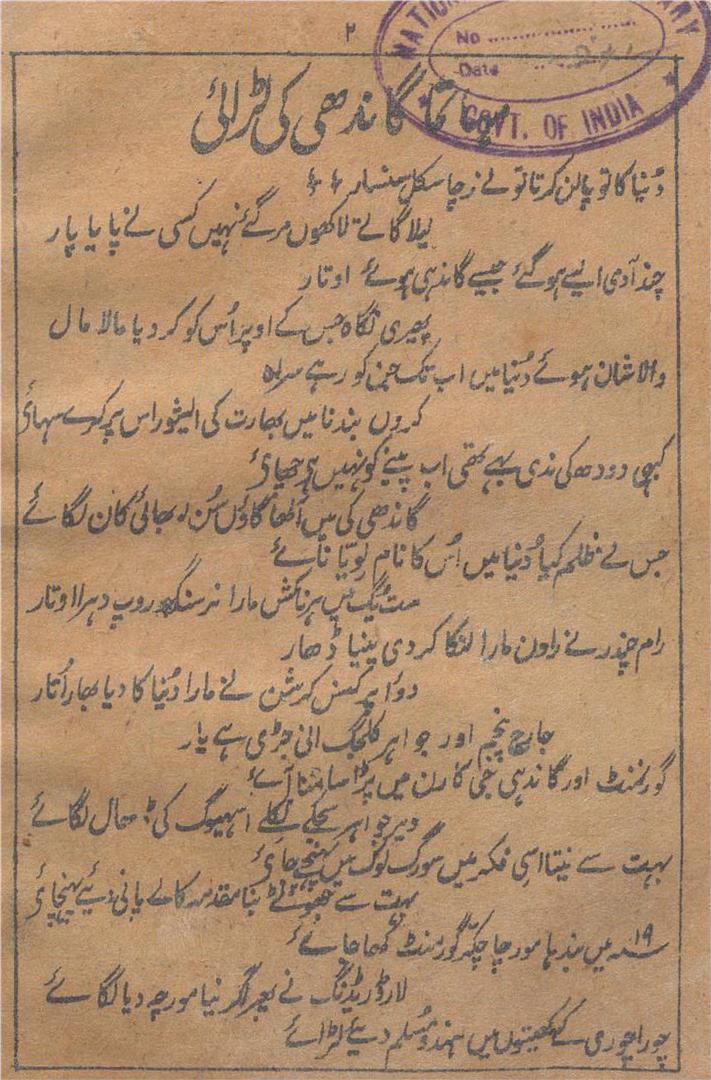 ۲
NATIONAL ARY
No
Date
GOVT. OF INDIA
مہاتما گاندھی کی لڑائی
دُنیا کا تو پالن کرتا تو نے رچا سکل سنسار
لیلا گاتے لاکھوں مر گئے نہیں کسی نے پایا پار
چند آدمی ایسے ہو گئے جیسے گاندہی ہوئے اوتار
پھیری نگاہ جس کے اوپر اُس کو کر دیا مالا مال
والا شان ہوئے دُنیا میں اب تک جن کو رہے سراہ
کروں بندنا میں بھارت کی ایشور اس پر کرے سہائی
کبہی دودھ کی ندی بہے تھی اب پینے کو نہیں ہے چھائے
گاندھی کی میں اُلھا گاؤں سُن لو بھائی کان لگائے
جس نے ظلم کیا دُنیا میں اُس کا نام لو یا نائے
ست یگ میں ہرناکش مارا نرسنگھ روپ دہرا اوتار
رام چندر نے راون مارا لنکا کر دی پنیا ڈھار
دواپر کنس کرشن نے مارا دُنیا کا دیا بھار اُتار
جارج پنچم اور جواہر کلجگ انی جڑی ہے یار
گورنمنٹ اور گاندہی جی کا رن میں پڑا سامنا آئے
دیر جواہر سجکے نکلے اسہیوگ کی ڈھال لگائے
بہت سے نیتا اسی فکر میں سورگ لوک میں پہنچے جائے
بہت سے جھوٹے بنا مقدمہ کالے پانی دیئے پہنچائے
سنہ ۱۹ میں بندہا مورچا چکّر گورنمنٹ کھا جائے
لارڈ ریڈنگ نے پھر آکر نیا مورچہ دیا لگائے
چورا چوری کے کھیتوں میں ہندو مُسلم دیئے لڑائے